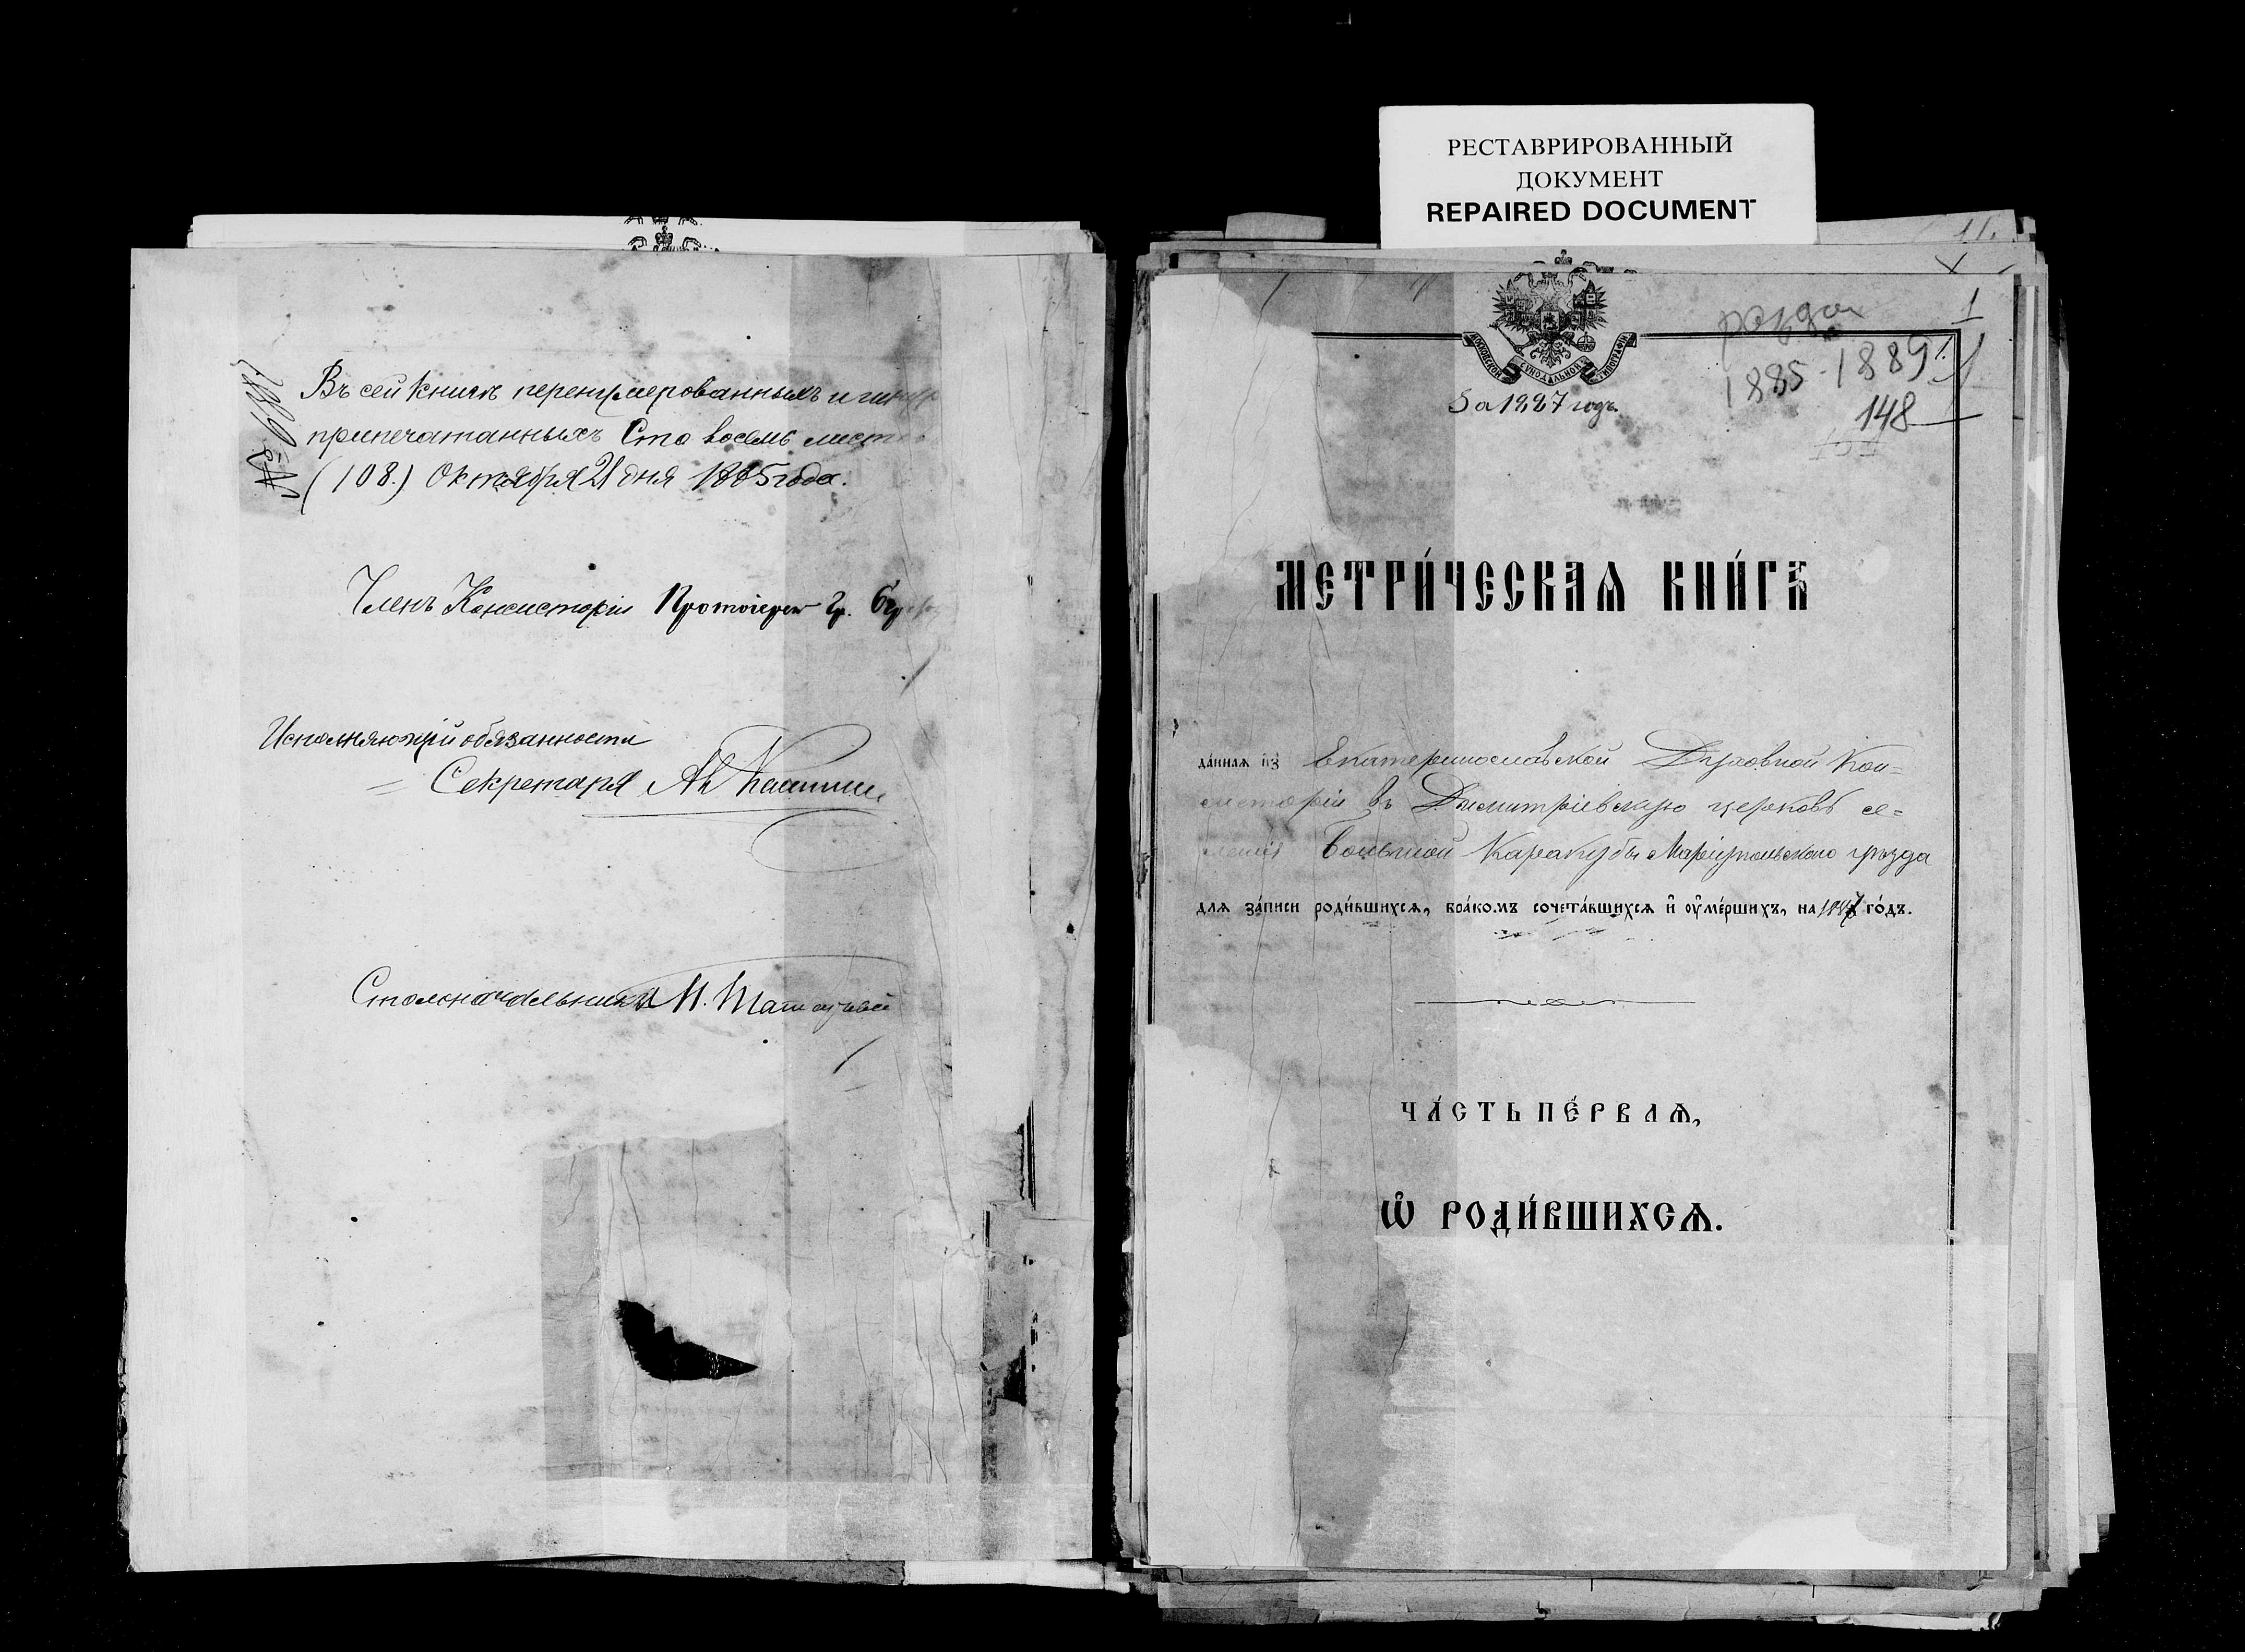 Въ сей книгѣ перенумерованныхъ и
припечатанныхъ Сто восемь
(108.) Октября 21 дня 1885 года.
Членъ Консисторіи Протоіерей Гр.
Исполняющій обязанности
Секретаря
Столоначальникъ
РЕСТАВРИРОВАННЫЙ
ДОКУМЕНТ
REPAIRED DOCUMENT
МОСКОВСКОЙ СѴНОДАЛЬНОЙ ТИПОГРАФІИ
1
1885-1889
За 1887 годъ.
148
МЕТРИ́ЧЕСКАѦ КНИ́ГА
да́ннаѧ из Екатеринославской Духовной Кон=
систоріи въ Димитріевскую церковь се=
ленія Большой Каракубы Маріупольскаго уѣзда
длѧ за́писи роди́вшихсѧ, бра́комъ сочета́вшихсѧ и҆ ᲂу҆ме́ршихъ, на 1887 го́дъ.
ЧА́СТЬ ПЕ́РВАѦ,
Ѡ҆ РОДИ́ВШИХСѦ.